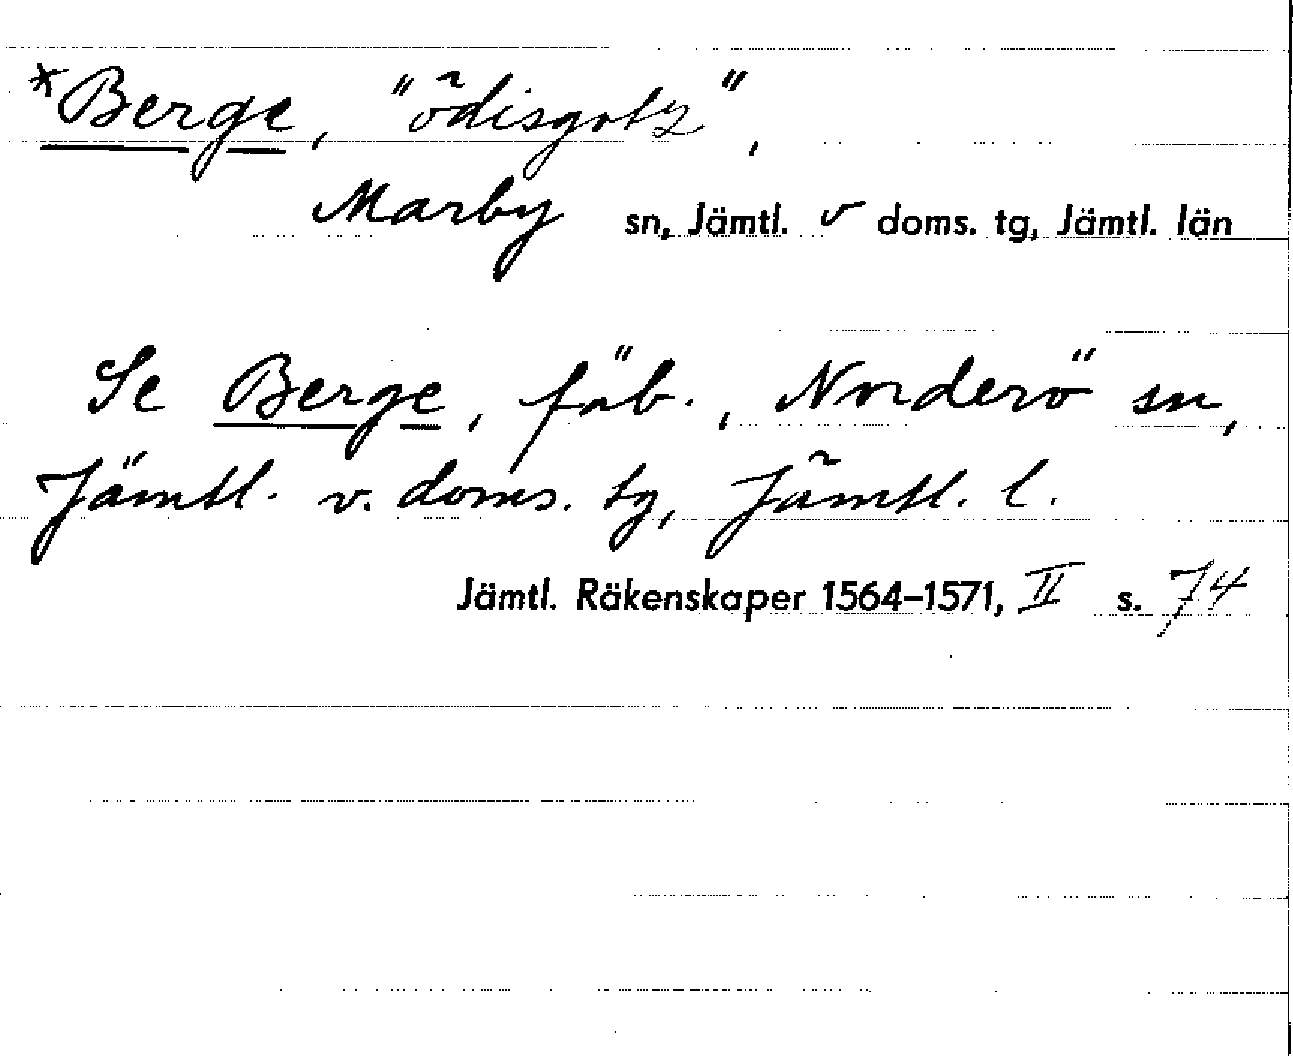 *Berge, "ödisgotz",
Marby sn, Jämtl. v doms. tg, Jämtl. län
Se Berge, fäb., Norderö sn,
Jämtl. v. doms. tg, Jämtl. l.
Jämtl. Räkenskaper 1564–1571, II s. 74